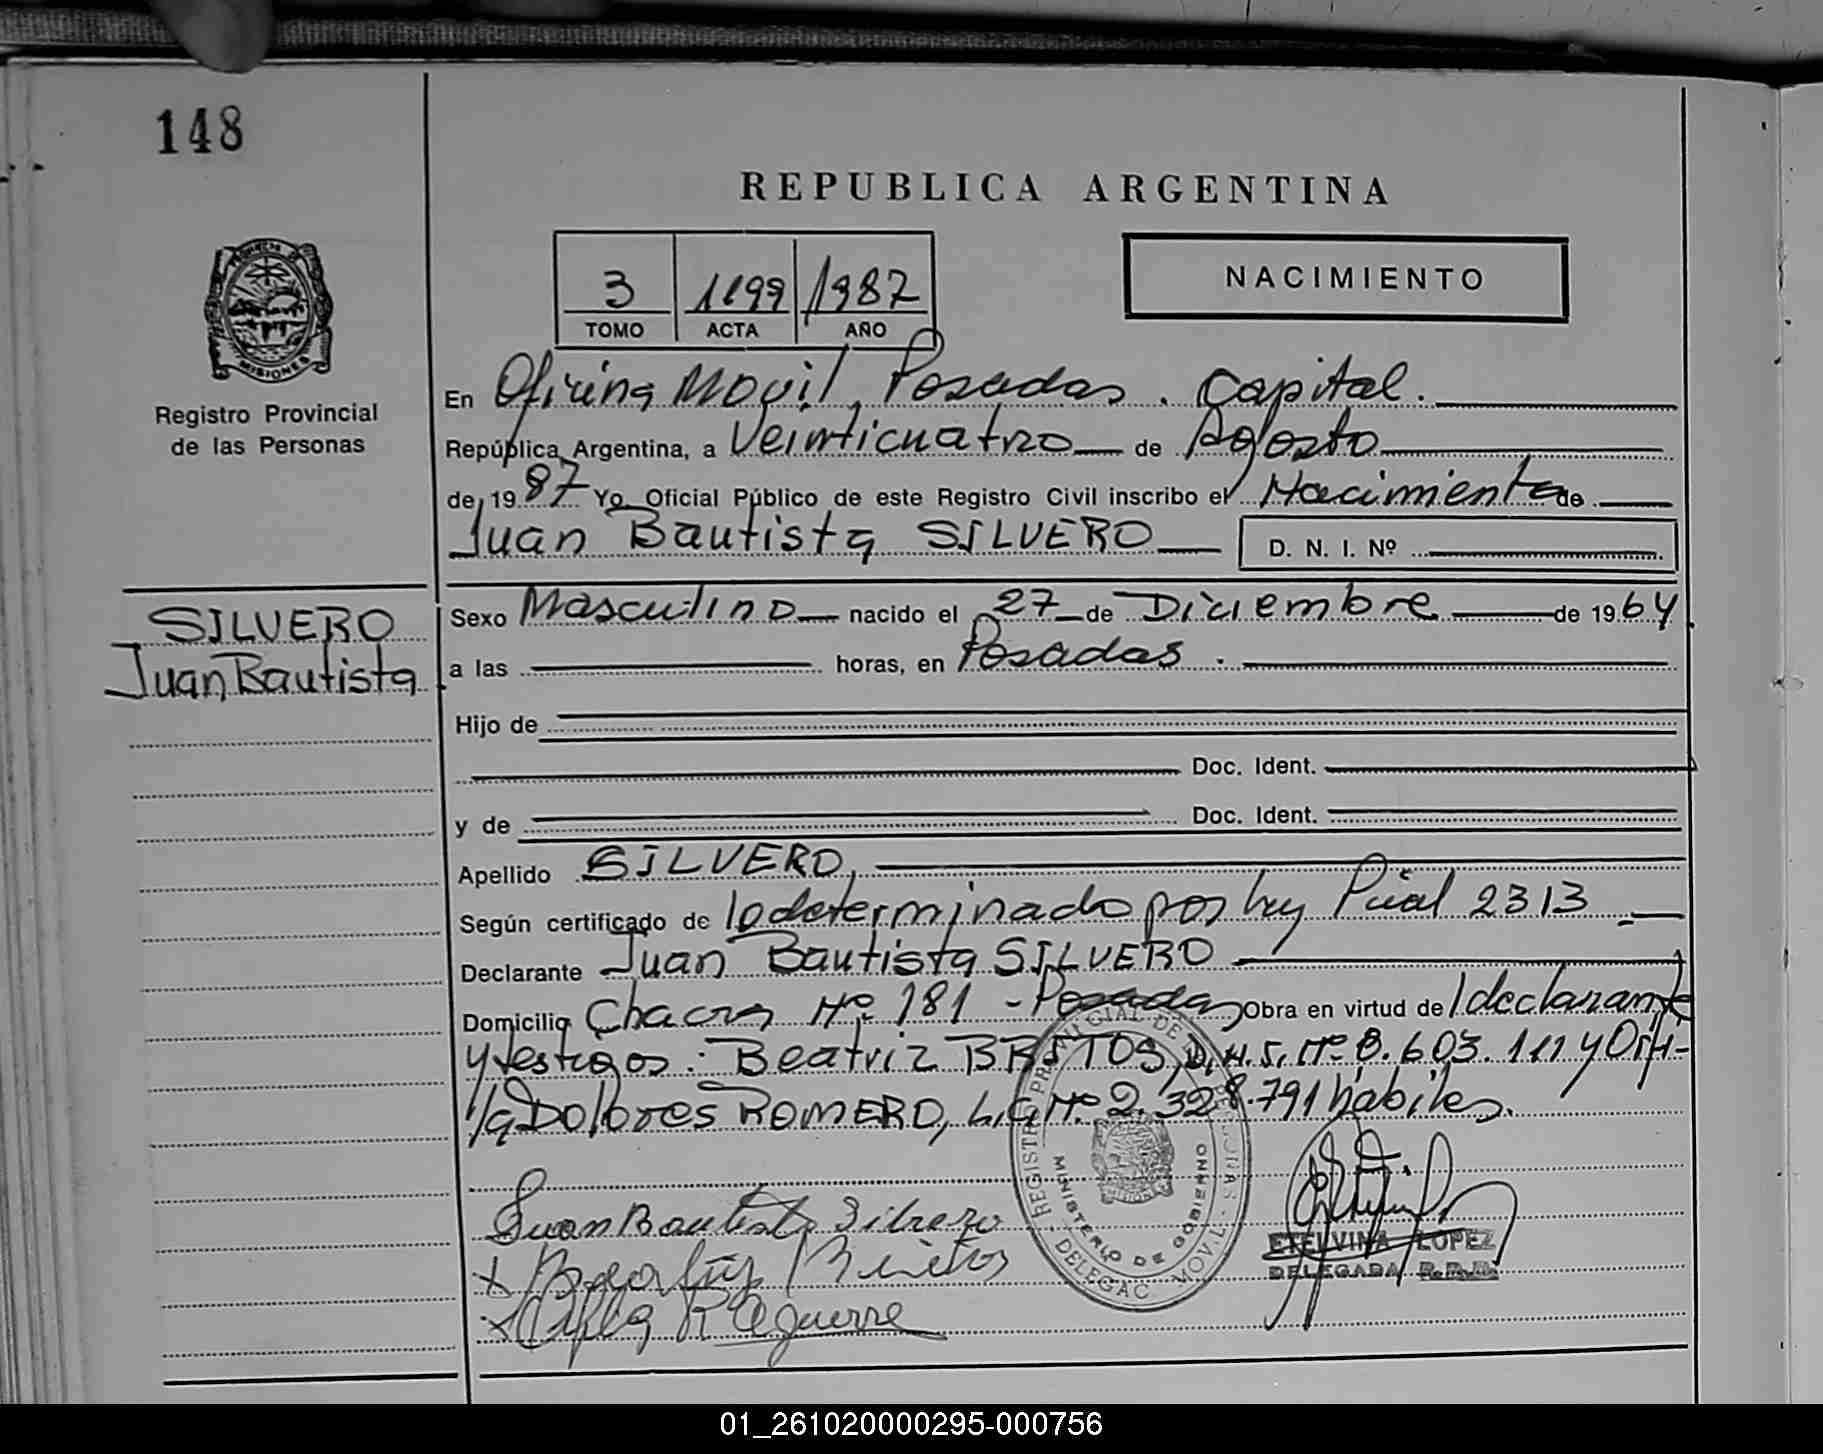 148
REPUBLICA ARGENTINA
3 1199 1987
TOMO ACTA AÑO
NACIMIENTO
MISIONES
Registro Provincial
de las Personas
En Oficina Movil, Posadas. Capital.
República Argentina, a Veinticuatro de Agosto
de 1987 Yo Oficial Público de este Registro Civil inscribo el Nacimiento de
Juan Bautista SILVERO D. N. I. Nº
SILVERO
Juan Bautista
Sexo Masculino nacido el 27 de Diciembre de 1964
a las horas, en Posadas.
Hijo de
Doc. Ident.
y de Doc. Ident.
Apellido SILVERO,
Según certificado de lo determinado por ley Pcial 2313
Declarante Juan Bautista SILVERO
Domicilio Chacra Nº 181 - Posadas Obra en virtud de l declarante
y testigos: Beatriz BRITOS, D.N.I. Nº 8.603.111 y Ofi-
lia Dolores ROMERO, L.C Nº 2.328.791 hábiles.
REGISTRO PROVINCIAL DE LAS PERSONAS - DELEGAC. MOVIL
MINISTERIO DE GOBIERNO
Juan Bautista Silvero
ETELVINA LOPEZ
DELEGADA R.P.P.
01_261020000295-000756